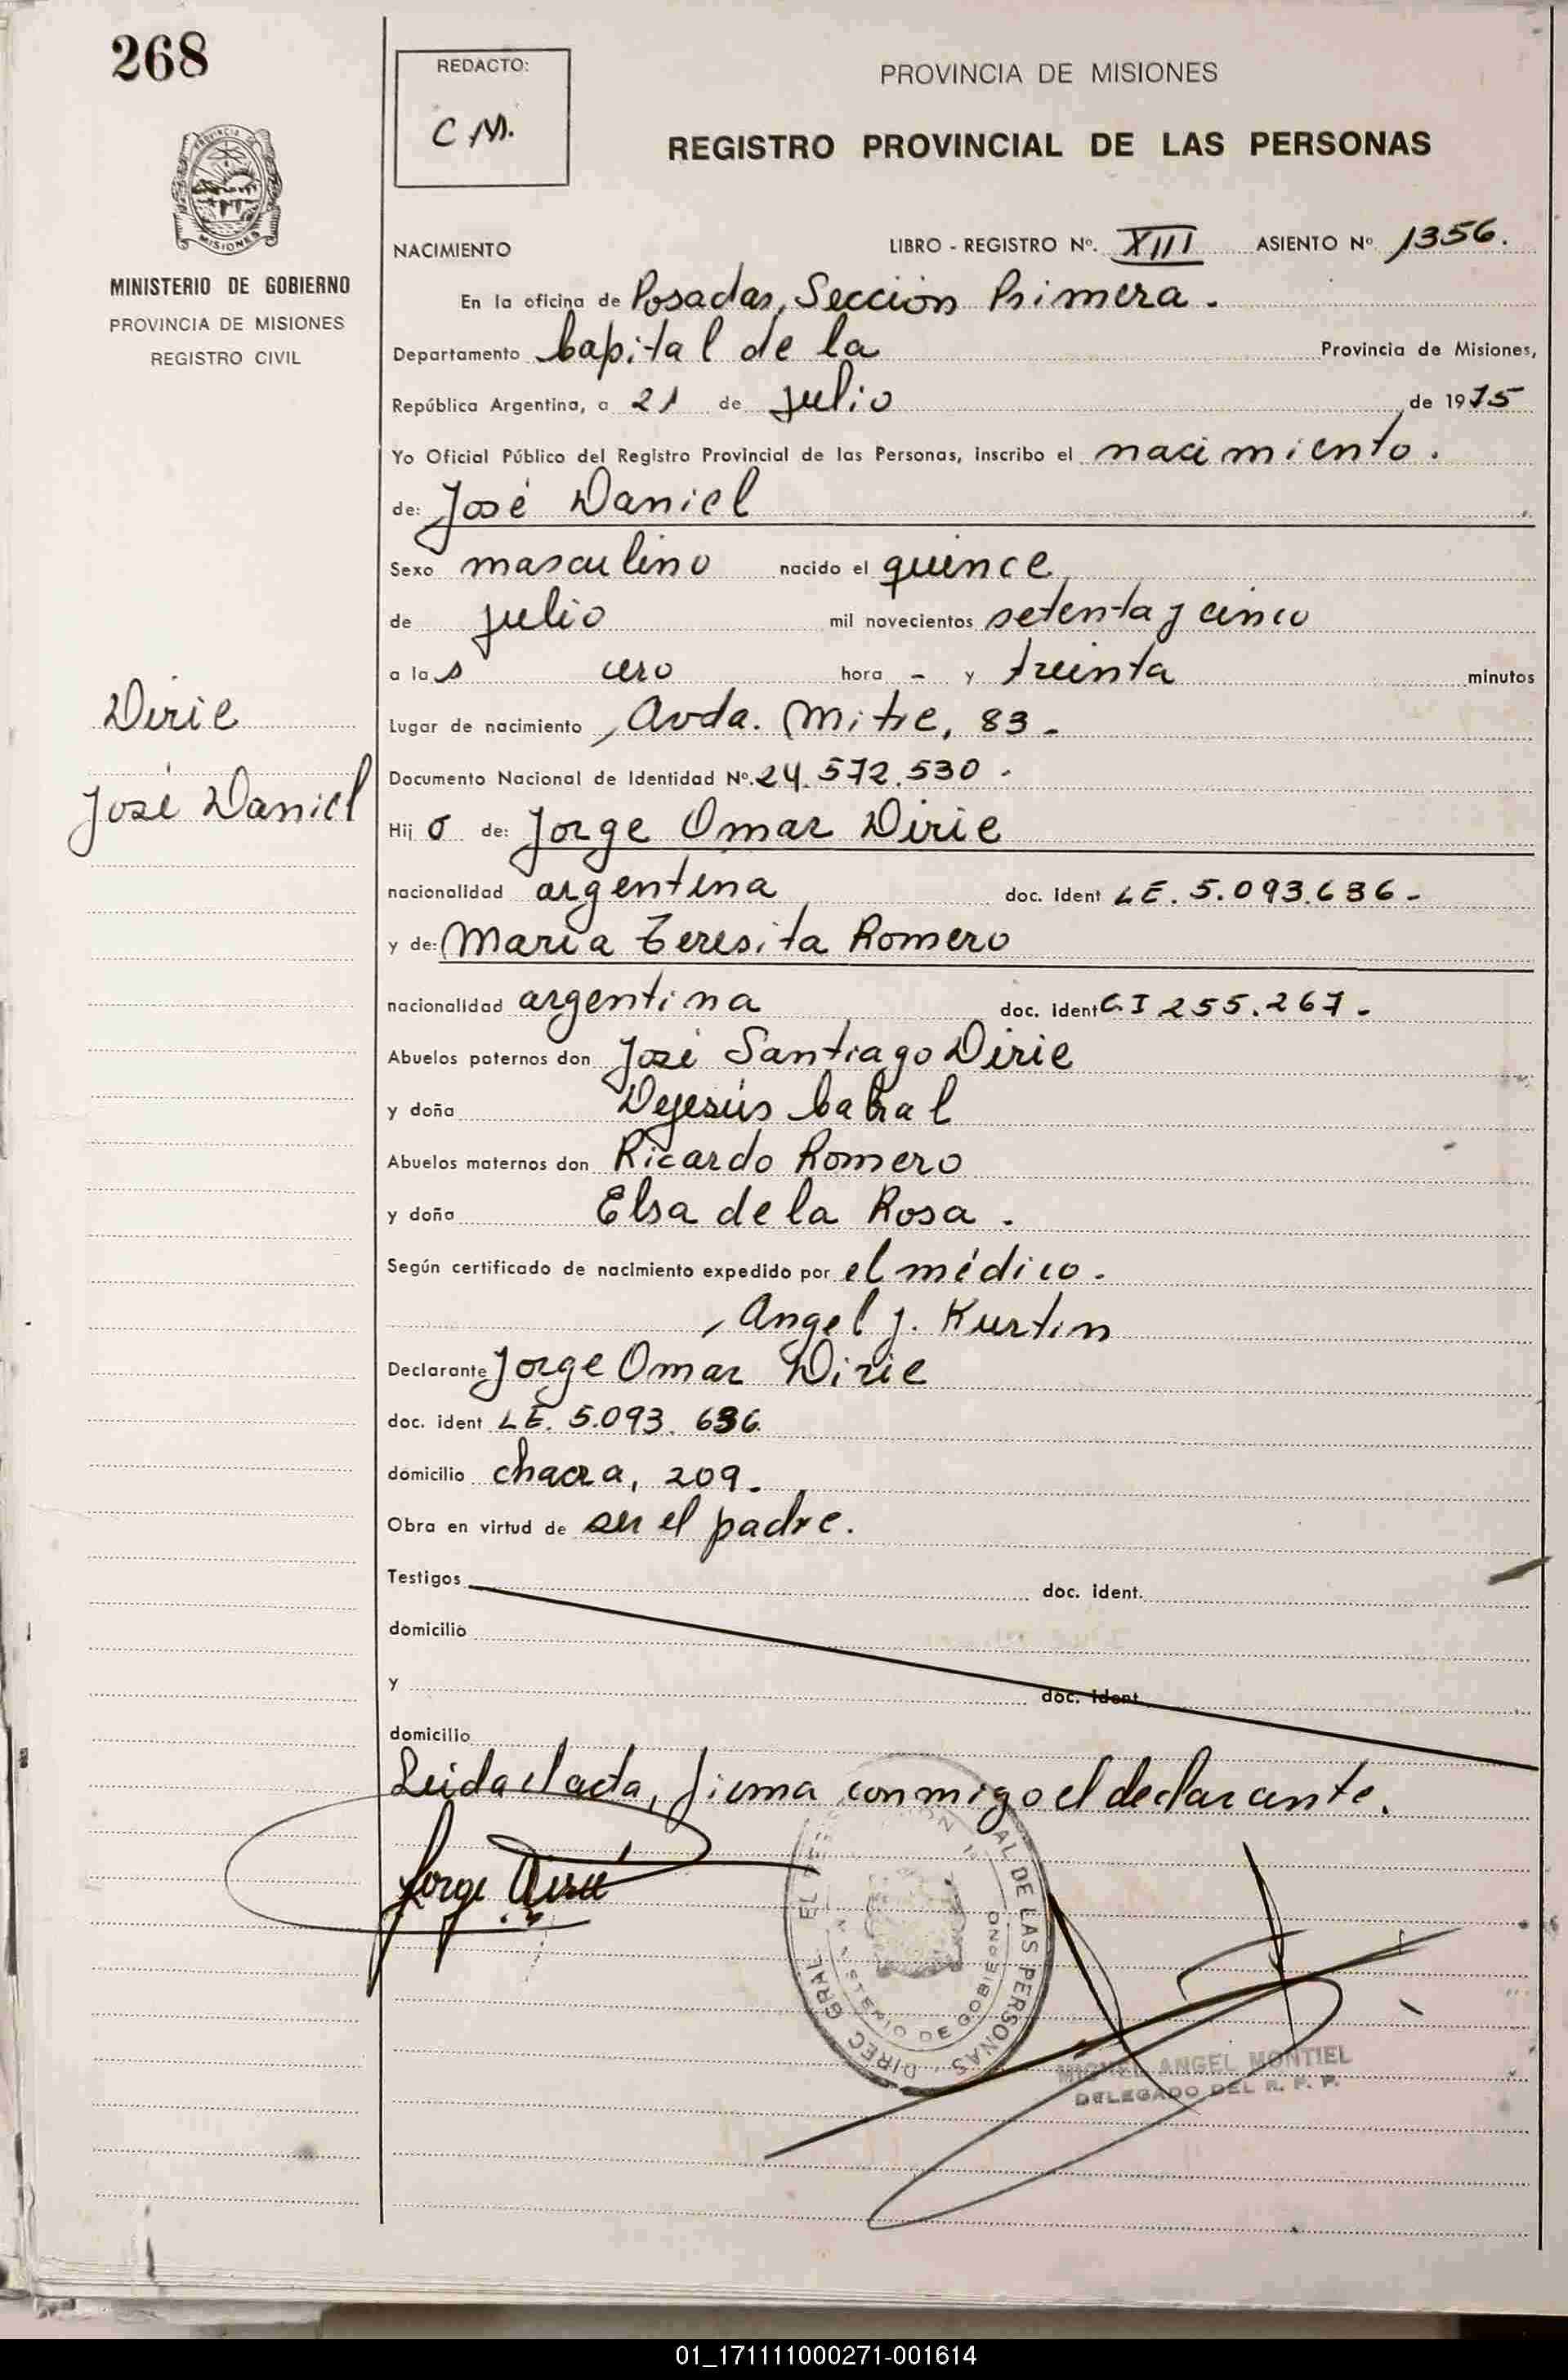 268
REDACTO:
C M.
PROVINCIA DE MISIONES
REGISTRO PROVINCIAL DE LAS PERSONAS
PROVINCIA DE
MISIONES
MINISTERIO DE GOBIERNO
PROVINCIA DE MISIONES
REGISTRO CIVIL
NACIMIENTO LIBRO - REGISTRO Nº. XIII ASIENTO Nº 1356.
En la oficina de Posadas, Sección Primera.
Departamento Capital de la Provincia de Misiones,
República Argentina, a 21 de julio de 1975
Yo Oficial Público del Registro Provincial de las Personas, inscribo el nacimiento.
de: José Daniel
Sexo masculino nacido el quince
de julio mil novecientos setenta y cinco
a las cero hora - y treinta minutos
Dirie
Lugar de nacimiento, Avda. Mitre, 83.
Documento Nacional de Identidad Nº. 24.572.530.
José Daniel
Hijo de: Jorge Omar Dirie
nacionalidad argentina doc. ident LE. 5.093.636.
y de: Maria Teresita Romero
nacionalidad argentina doc. ident C.I 255.267.
Abuelos paternos don José Santiago Dirie
y doña Dejesús Cabral
Abuelos maternos don Ricardo Romero
y doña Elsa de la Rosa.
Según certificado de nacimiento expedido por el médico.
, Angel J. Kurtin
Declarante Jorge Omar Dirie
doc. ident LE. 5.093.636.
domicilio chacra, 209.
Obra en virtud de ser el padre.
Testigos doc. ident.
domicilio
y doc. ident
domicilio
Leida el acta, firma conmigo el declarante.
Jorge Dirié
DIREC GRAL DE LAS PERSONAS
MINISTERIO DE GOBIERNO
MIGUEL ANGEL MONTIEL
DELEGADO DEL R. P. P.
01_171111000271-001614